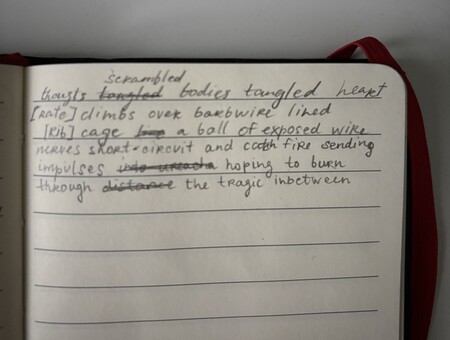 scrambled
thougts tangled bodies tangled heart
[rate] climbs over barbwire lined
[rib] cage a ball of exposed wire
nerves short-circuit and catch fire sending
impulses hoping to burn
through distance the tragic inbetween